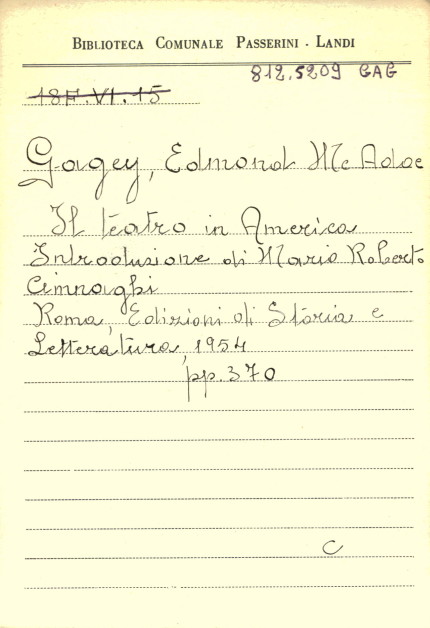 BIBLIOTECA COMUNALE PASSERINI - LANDI
812.5209 GAG
18F.VI.15
Gagey, Edmond Mc Adoe
Il teatro in America
Introduzione di Mario Roberto
Cimnaghi
Roma, Edizioni di Storia e
Letteratura, 1954
pp. 370
C